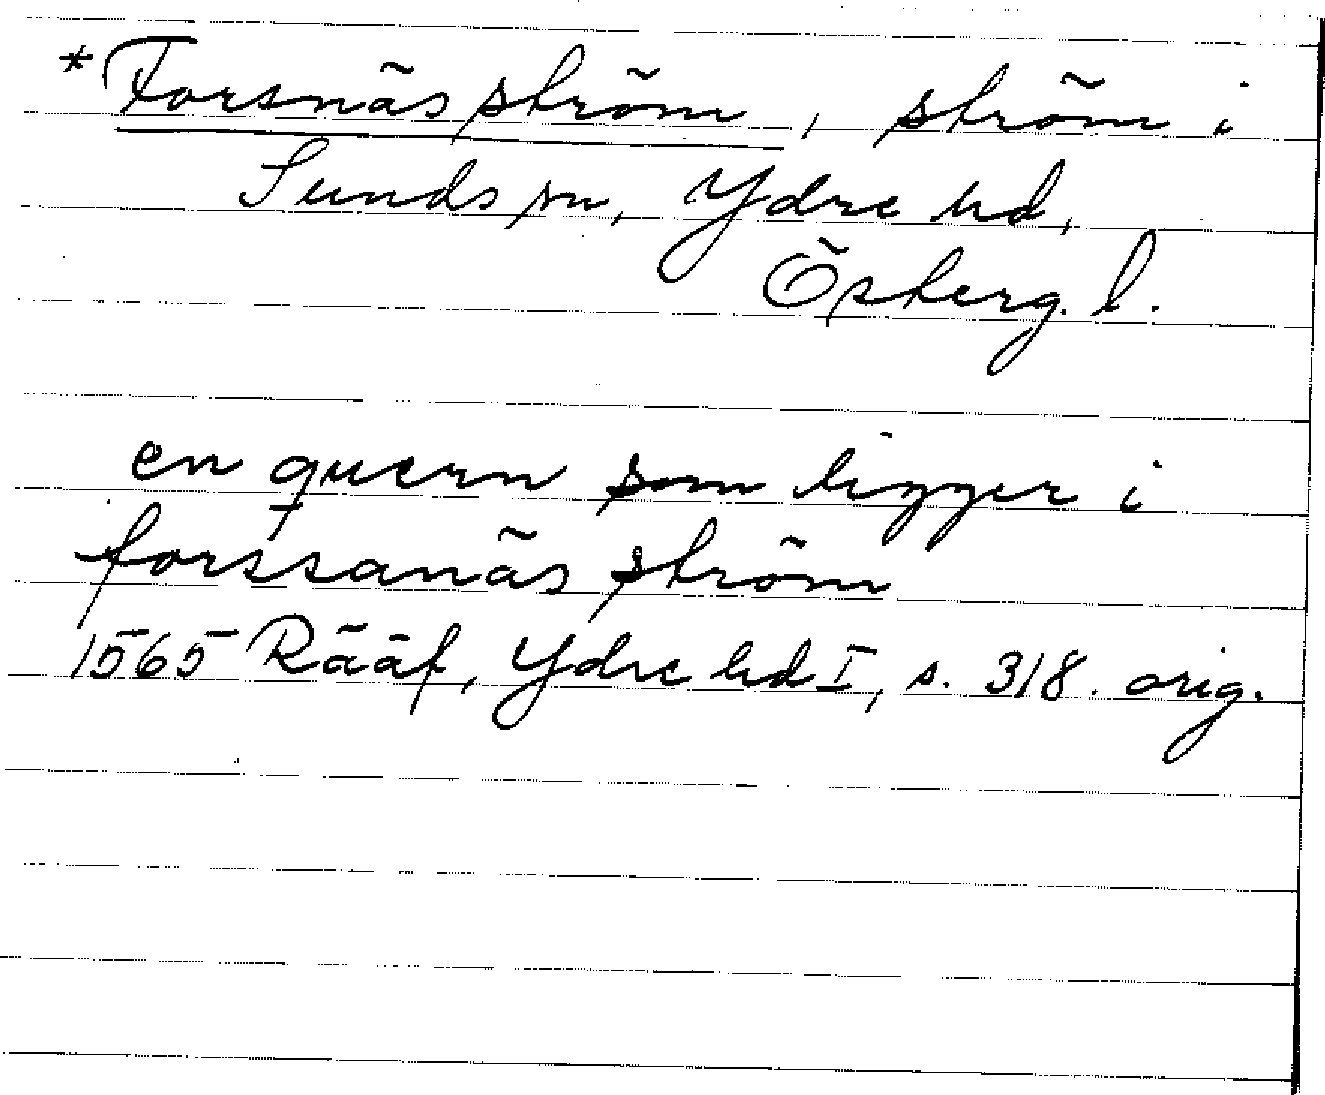 *Forsnäs ström, ström i
Sunds sn, Ydre hd,
Östergl.
en quern som ligger i
forssanäs ström
1565 Rääf, Ydre hd I, s. 318. orig.